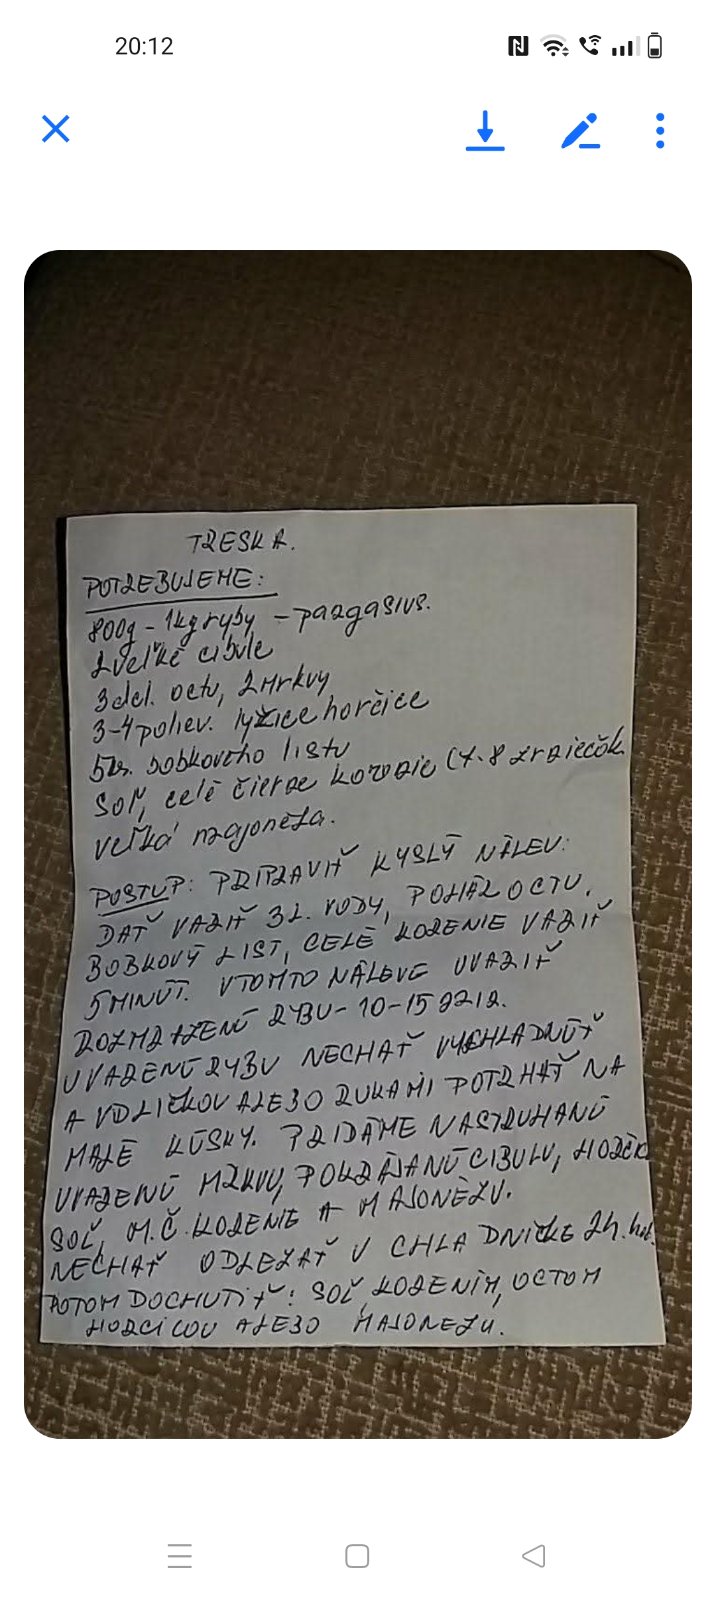 20:12
TRESKA.
POTREBUJEME:
800g - 1kg ryby - pangasius.
2 veľké cibule
3 dcl. octu, 2 mrkvy
3-4 poliev. lyžice horčice
5 ks. bobkového listu
soľ, celé čierne korenie (7-8 zrniečok
veľká majonéza.
POSTUP: PRIPRAVIŤ KYSLÝ NÁLEV:
DAŤ VARIŤ 3 L. VODY, POHÁR OCTU,
BOBKOVÝ LIST, CELÉ KORENIE VARIŤ
5 MINÚT. V TOMTO NÁLEVE UVARIŤ
ROZMRAZENÚ RYBU - 10-15
UVARENÚ RYBU NECHAŤ VYCHLADNÚŤ
A VIDLIČKOU ALEBO RUKAMI POTRHAŤ NA
MALÉ KÚSKY. PRIDÁME NASTRUHANÚ
UVARENÚ MRKVU, POKRÁJANÚ CIBUĽU,
SOĽ, M.Č. KORENIE A MAJONÉZU.
NECHAŤ ODLEŽAŤ V CHLADNIČKE 24. hod.
POTOM DOCHUTIŤ: SOĽ, KORENÍM, OCTOM
HORČICOU ALEBO MAJONÉZU.